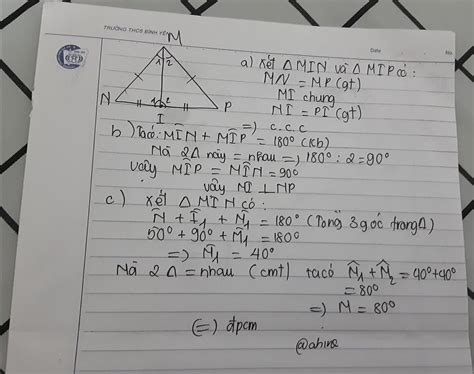 TRƯỜNG THCS BÌNH YÊN
Date
M
1 2
N
1 2
I
P
a) Xét Δ MIN và Δ MIP có:
MN = MP (gt)
MI chung
NI = PI (gt)
=) c.c.c
b) Ta có: MÎN + MÎP = 180° (kb)
Mà 2Δ này = nhau =) 180° : 2 = 90°
vây MÎP = MÎN = 90°
vây MI ⊥ NP
c) Xét Δ MIN có:
N̂ + Î₁ + M̂₁ = 180° (Tổng 3 góc trongΔ)
50° + 90° + M̂₁ = 180°
=) M̂₁ = 40°
Mà 2Δ = nhau (cmt) ta có M̂₁ + M̂₂ = 40° + 40°
= 80°
=) M = 80°
(=) đpcm